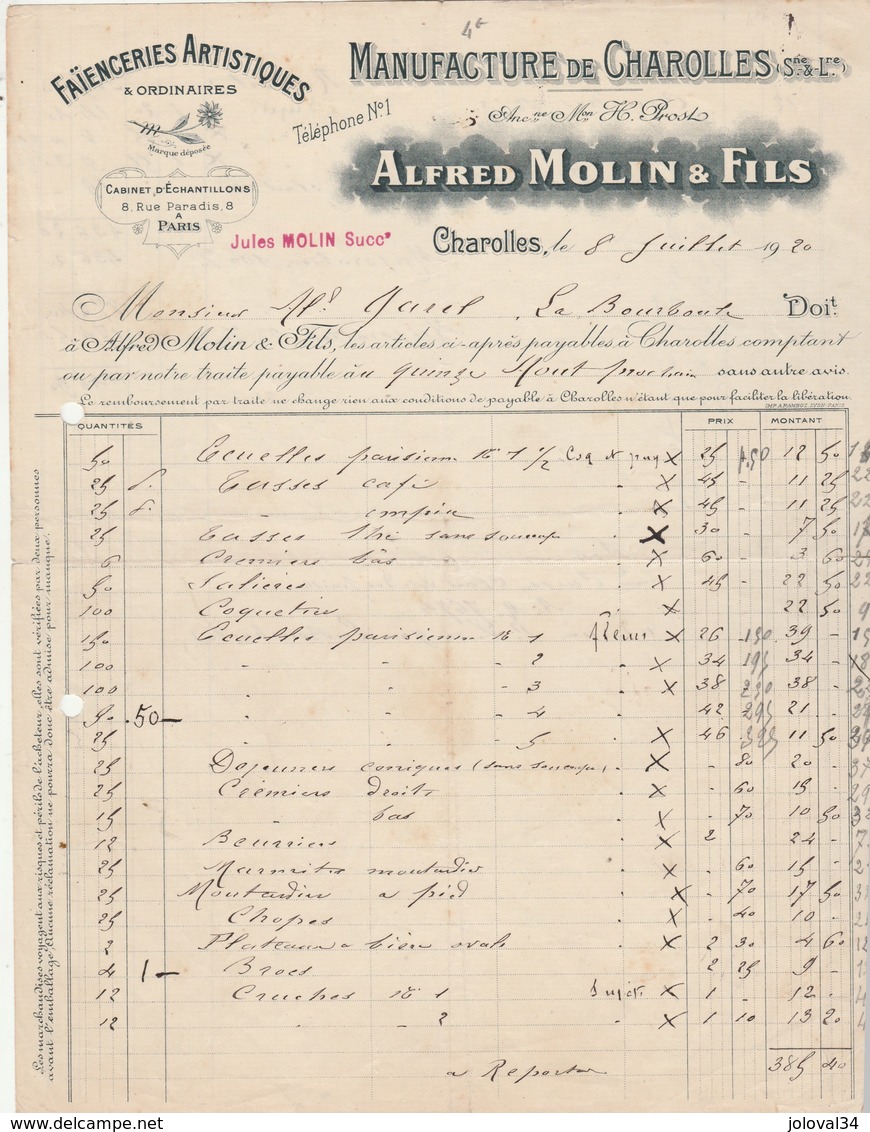 4
FAÏENCERIES ARTISTIQUES
& ORDINAIRES
Marque déposée
CABINET D'ÉCHANTILLONS
8, Rue Paradis, 8
A
PARIS
Téléphone N° 1
MANUFACTURE DE CHAROLLES (Sne & Lre)
Ancne Mon H. Prost
ALFRED MOLIN & FILS
Jules MOLIN Succr
Charolles, le 8 Juillet 1920
Monsieur Al. La Bourboule Doit
à Alfred Molin & Fils, les articles ci-après payables à Charolles comptant
ou par notre traite payable au quinze Août prochain sans autre avis.
Le remboursement par traite ne change rien aux conditions de payable à Charolles n'étant que pour faciliter la libération.
QUANTITÉS PRIX MONTANT
50 Ecuelles parisienn N° 1 1/2 Coq X 25 - 12 50
25 Tasses café . X 45 - 11 25
25 - empire . X 45 - 11 25
25 Tasses thé sans soucoupe . X 30 - 7 50
6 Cremiers bas . X 60 - 3 60
50 Salières . X 45 - 22 50
100 Coquetiers X 22 50
150 Ecuelles parisienn N° 1 fleurs X 26 - 39 -
100 - - - 2 X 34 34 -
100 - - - 3 X 38 - 38 -
50 . 50 - - - - 4 . 42 21 -
25 - - - 5 X 46 11 50
25 Dejeuners coniques (sans soucoupe) . X - 80 20 -
25 Crémiers droits X - 60 15 -
15 - bas X - 70 10 50
12 Beurriers X 2 24 -
25 Marmites moutardier . X - 60 15 -
25 Moutardier à pied X - 70 17 50
25 Chopes . X - 40 10 -
2 Plateaux à bière ovale . X 2 30 4 60
4 1 - Brocs . 2 25 9 -
12 Cruches N° 1 Sujets X 1 - 12 -
12 - - 2 . X 1 10 13 20
a Reporter 385 40
Les marchandises voyagent aux risques et périls de l'acheteur, elles sont vérifiées par deux personnes
avant l'emballage; Aucune réclamation ne pourra donc être admise pour manque.
joloval34